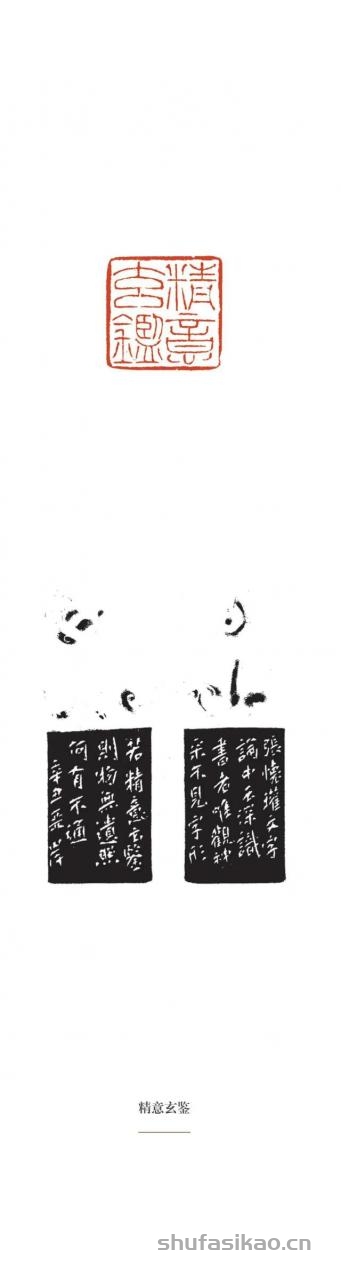 精意
玄鑑
張懷瓘文字
論中云深識
書者唯觀神
采不見字形
若精意玄鑒
則物無遺照
何有不通
辛丑
精意玄鉴
shufasikao.cn